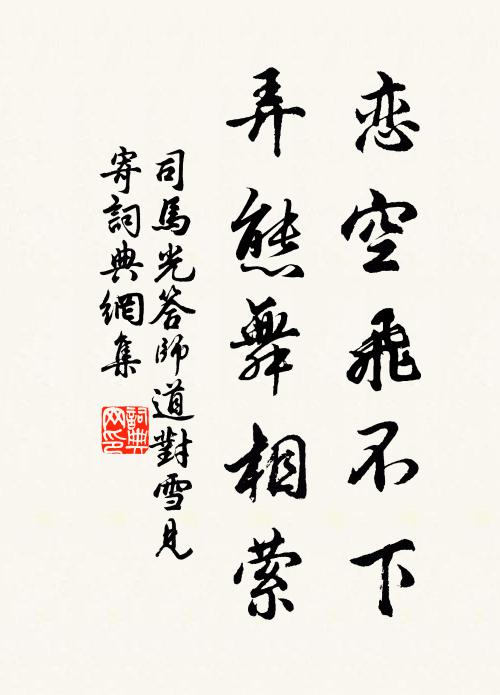 恋空飛不下
弄態舞相縈
司馬光答師道對雪見
寄詞典網集
詞典網印